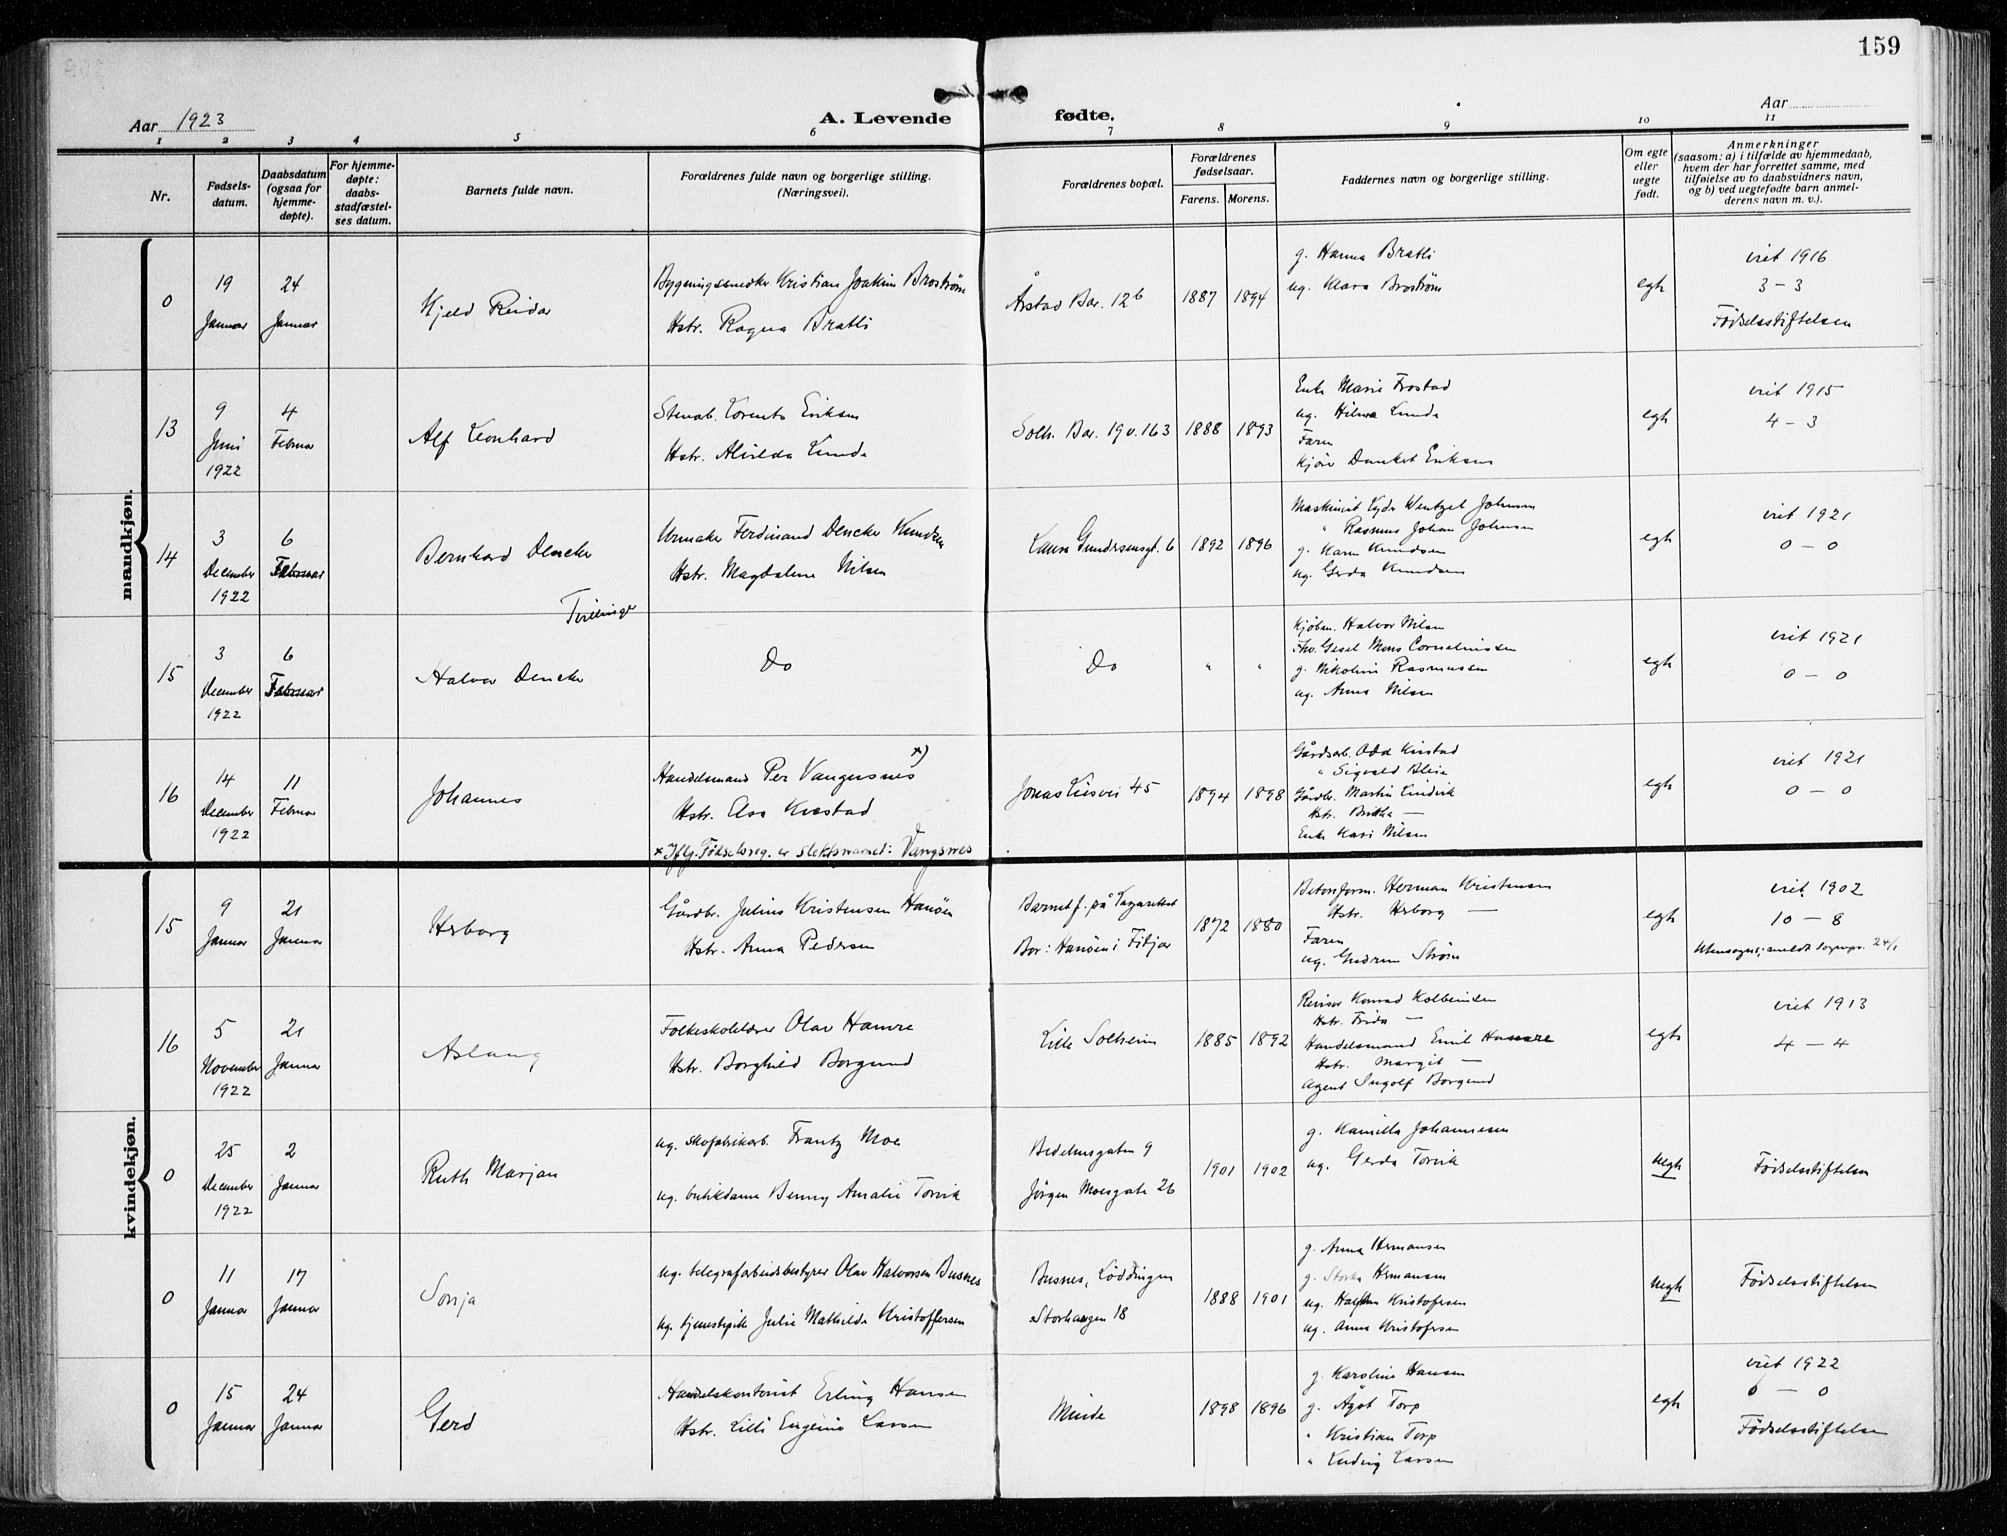 159
Aar 1923
A. Levende fødte.
Aar
1 2 3 4 5 6 7 8 9 10 11
Nr.
Fødsels-
datum.
Daabsdatum
(ogsaa for
hjemme-
døpte).
For hjemme-
døpte:
daabs-
stadfæstel-
ses datum.
Barnets fulde navn.
Forældrenes fulde navn og borgerlige stilling.
(Næringsvei).
Forældrenes bopæl.
Forældrenes
fødselsaar.
Farens. Morens.
Faddernes navn og borgerlige stilling.
Om egte
eller
uegte
født.
Anmerkninger
(saasom: a) i tilfælde av hjemmedaab,
hvem der har forrettet samme, med
tilføielse av to daabsvidners navn,
og b) ved uegtefødte barn anmel-
derens navn m. v.).
mandkjøn.
0
19
Januar
24
Januar
Kjeld Reidar
Bygningssnedker Kristian Joakim Broström
Hstr. Ragna Bratli
Årstad Bar. 12b
1887 1894
g. Hanna Bratli
ug. Klara Broström
egte
viet 1916
3 – 3
Fødselsstiftelsen
13
9
Juni
1922
4
Februar
Alf Leonhard
Stenarb. Lorents Eriksen
Hstr. Alvilda Lunde
Solh. Bar. 19 v. 163
1888 1893
Enke Marie Frostad
ug. Hilma Lunde
Faren
Eriksen
egte
viet 1915
4 – 3
14
3
December
1922
6
Februar
Bernhard Dencker
Urmaker Ferdinand Dencker Knudsen
Hstr. Magdalene Nilsen
Laura Gundersensgt. 6
1892 1896
Maskinist Wentzel Johnsen
" Rasmus Johan Johnsen
g. Karen Knudsen
ug. Gerda Knudsen
egte
viet 1921
0 – 0
Tvillinger
15
3
December
1922
6
Februar
Halvor Dencker
Do
Do
" "
Kjøbm. Halvor Nilsen
Mons Corneliussen
g. Nikoline Rasmussen
ug. Anna Nilsen
egte
viet 1921
0 – 0
16
14
December
1922
11
Februar
Johannes
Handelsmand Per Vangersnes x)
Hstr. Åsa Kvestad
x Iflg. Fødselsreg. er slektsnavnet: Vangsnes
Jonas Liesvei 45
1894 1898
Gårdsarb. Odd
" Sigvald
Gårdbr. Martin
Hstr. Britha —
Enke Kari Nilsen
egte
viet 1921
0 – 0
kvindekjøn.
15
9
Januar
21
Januar
Herborg
Gårdbr. Julius Kristensen Hanøen
Hstr. Anna Pedersen
Barnet f. på Lazarettet
Bor: Hanøen i Fitjar
1872 1880
Betonform. Herman Kristensen
Hstr. Herborg —
Faren
ug. Gudrun Strøm
egte
viet 1902
10 – 8
Utensogns; meldt sognepr. 24/1
16
5
November
1922
21
Januar
Aslaug
Folkeskolelærer Olav Hamre
Hstr. Borghild Borgund
Lille Solheim
1885 1892
Revisor Konrad Kolbeinsen
Hstr. Frida —
Handelsmand Emil Hamre
Hstr. Margit —
Agent Ingolf Borgund
egte
viet 1913
4 – 4
0
25
December
1922
2
Januar
Ruth Marjan
ug. skofabrikarb. Frantz Moe
ug. butikdame Benny Amalie Torvik
Bedehusgaten 9
Jørgen Moesgate 26
1901 1902
g. Kamilla Johannesen
ug. Gerda Torvik
uegte
Fødselsstiftelsen
0
11
Januar
17
Januar
Sonja
ug. telegrafarbeidsbestyrer Olav Halvorsen Busnes
ug. tjenestepike Julie Mathilde Kristoffersen
Busnes, Løddingen
Storhaugen 18
1888 1901
g. Anna Hermansen
g. Hermansen
ug. Kristofersen
ug. Anna Kristofersen
uegte
Fødselsstiftelsen
0
15
Januar
24
Januar
Gerd
Handelskontorist Erling Hansen
Hstr. Lilli Eugenie Larsen
Minde
1898 1896
g. Karoline Hansen
g. Ågot Torp
" Kristian Torp
" Ludvig Larsen
egte
viet 1922
0 – 0
Fødselsstiftelsen